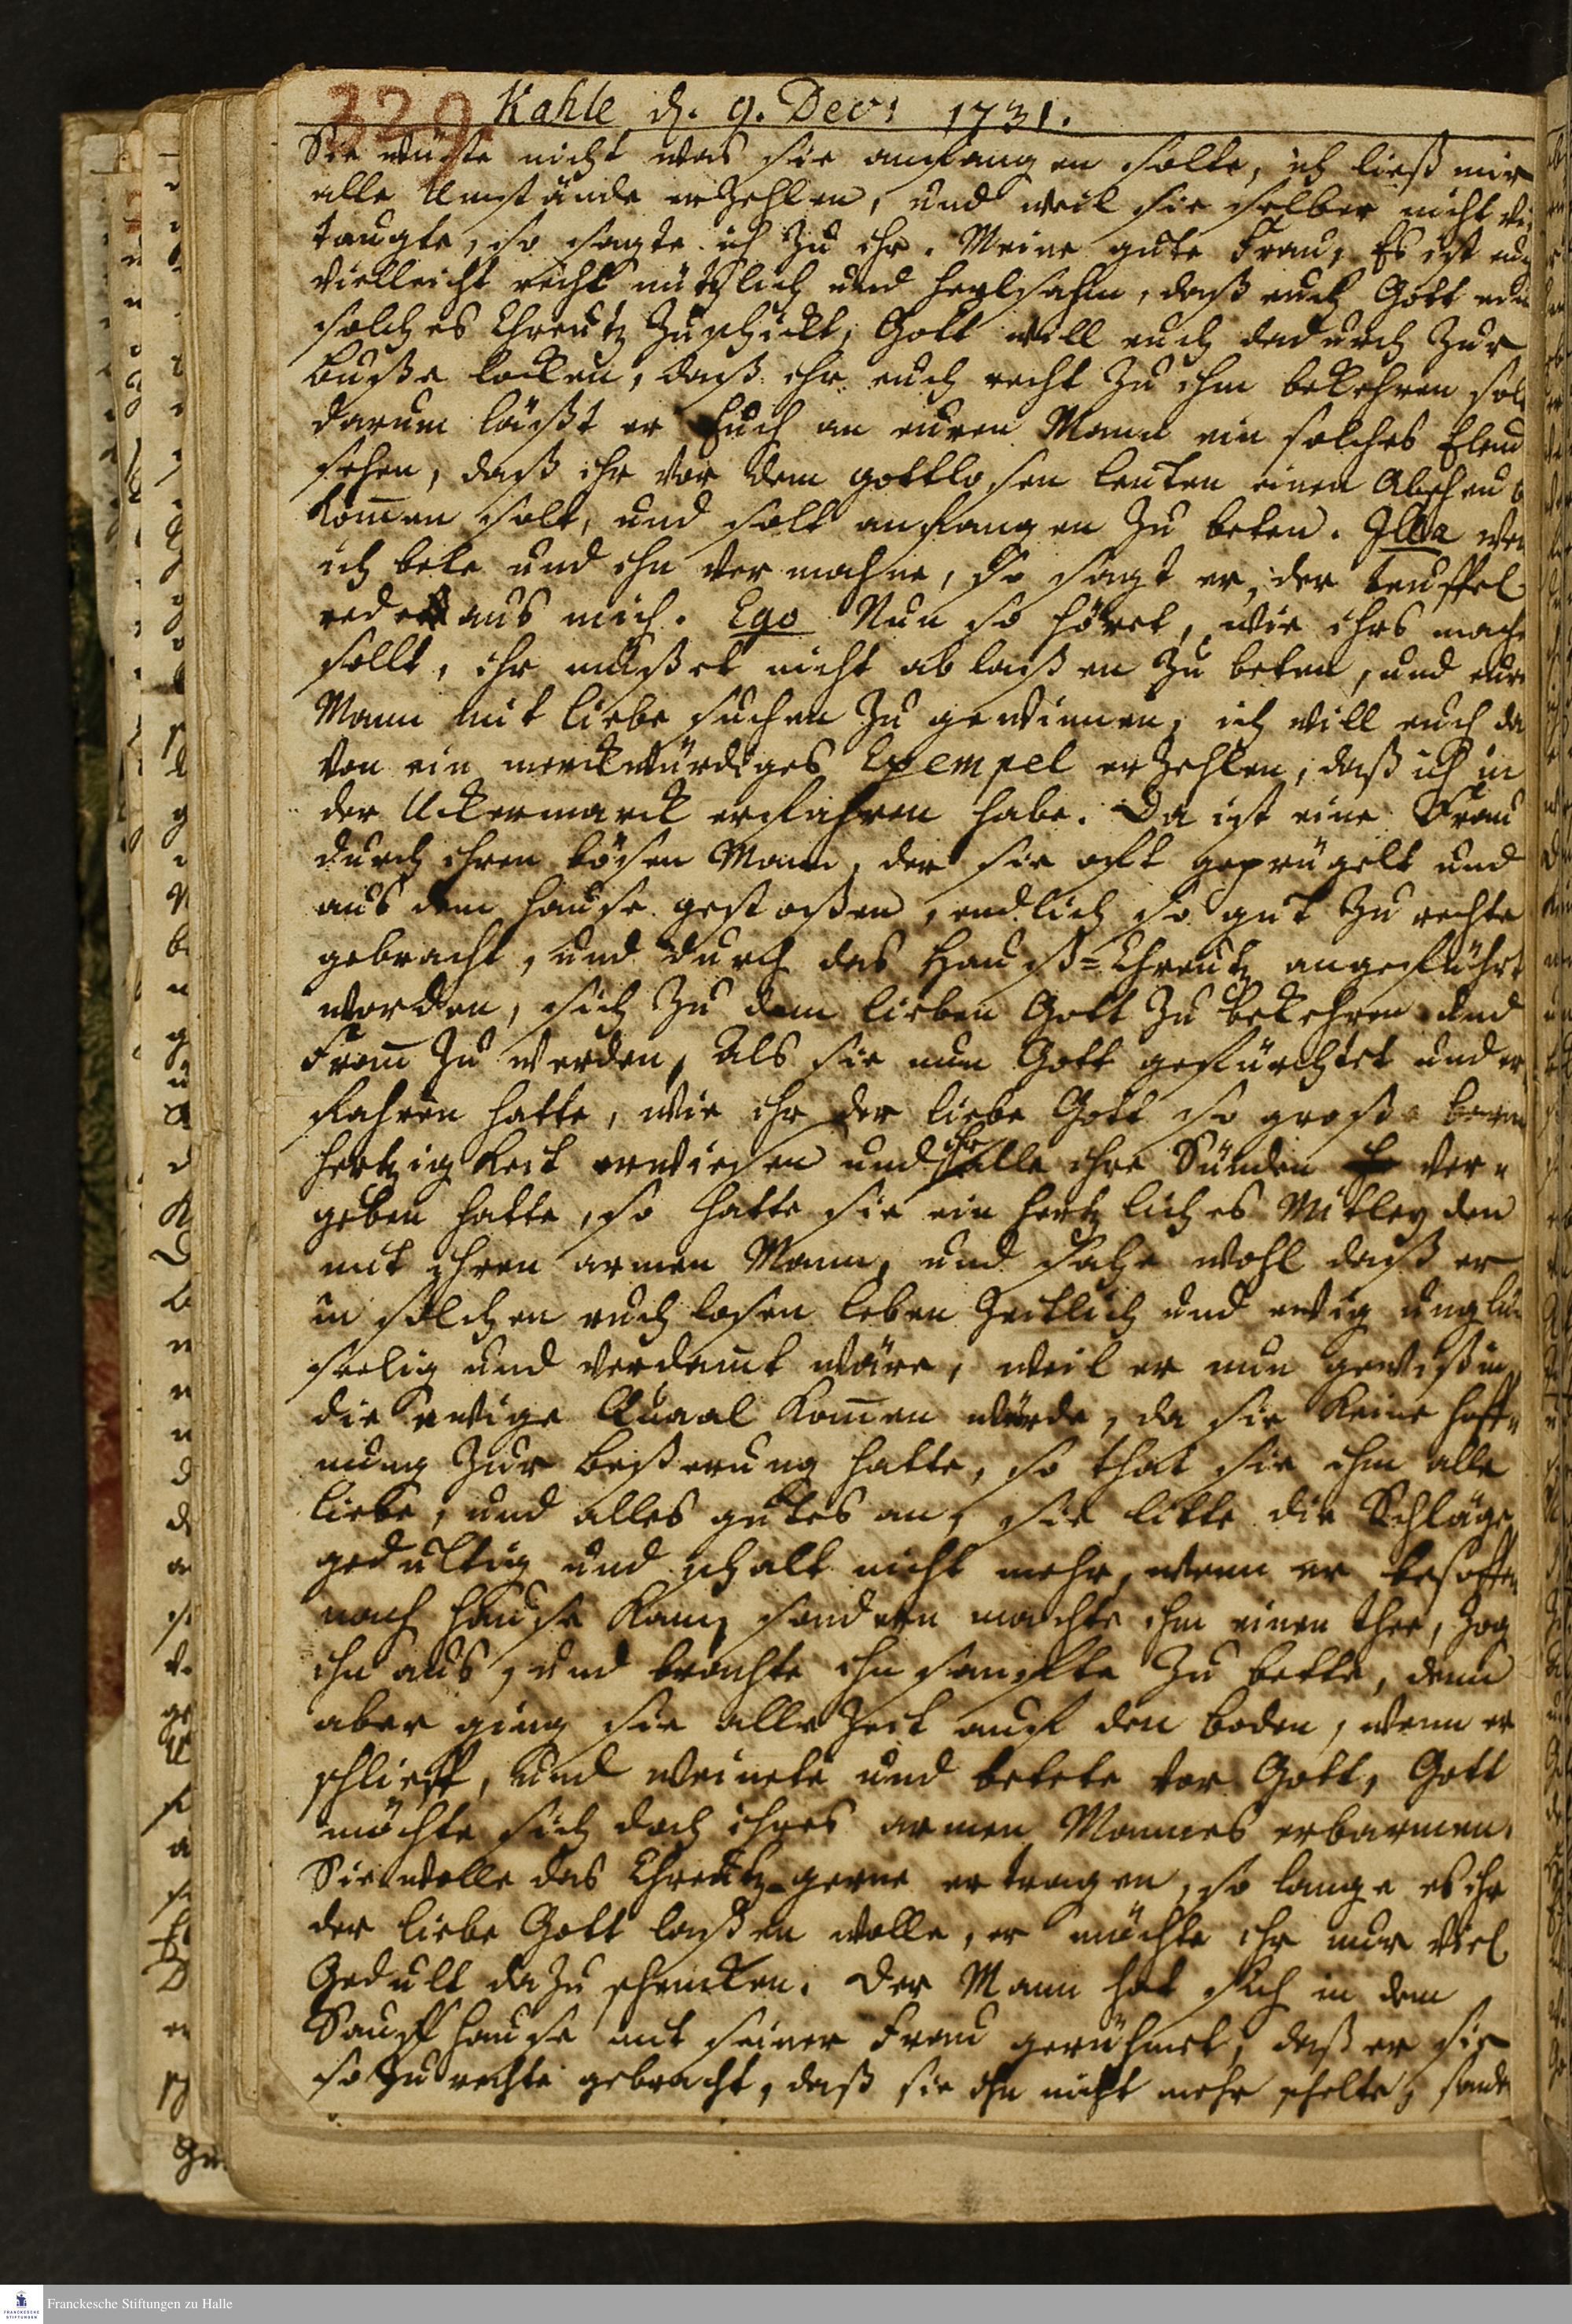 329
Kahle d. 9. Decr: 1731.
Sie wuste nicht was sie anfangen solte, ich ließ mir
alle Umstände erzehlen, und weil sie selber nicht vi
taugte, so sagte ich zu ihr. Meine gute Frau, Es ist euch
vielleicht recht nützlich und heylsahm, daß euch Gott
solches Creutz zuschickt, Gott will euch dadurch zur
buße locken, daß ihr euch recht zu ihm bekehren sol
darum läßt er Euch an euren Mann ein solches Elend
sehen, daß ihr vor dem gottlosen leuten einen Abscheu b
kom̄en solt, und solt anfangen zu beten. Illa wen
ich bete und ihn vermahne, so sagt er, der teuffel
redet aus mich. Ego Nun so höret, wie ihrs mache
sollt, ihr müßet nicht ablaßen zu beten, und eure
Mann mit liebe suchen zu gewinnen, ich will euch da
von ein merckwürdiges Exempel erzehlen, daß ich in
der Uckermarck erfahren habe. Da ist eine Frau
durch ihren bösen Mann, der sie oft geprügelt und
aus dem hause gestoßen, endlich so gut zu rechte
gebracht, und durch das Hauß-Creutz angeführt
worden, sich zu dem lieben Gott zu bekehren und
From̄ zu werden, Als sie nun Gott gefürchtet und er
fahren hatte, wie ihr der liebe Gott so große barm
hertzigkeit erwiesen und ihr alle ihre Sünden ver-
geben hatte, so hatte sie ein hertzliches Mitleyden
mit ihren armen Mann, und sahe wohl daß er
in solchen ruchlosen leben zeitlich und ewig unglück
seelig und verdam̄t wäre, weil er nun gewiß in
die ewige Quaal kom̄en würde, da sie keine hoff-
nung zur beßerung hatte, so that sie ihm alle
liebe, und alles gutes an, sie litte die Schläge
gedultig und schalt nicht mehr, wenn er besoffen
nach hause kam, sondern machte ihm einen thee, zog
ihn aus, und brachte ihn sanffte zu bette, denn
aber ging sie alle Zeit auf den boden, wenn er
schlieff, und weinete und betete vor Gott, Gott
möchte sich doch ihres armen Mannes erbarmen.
Sie wolle das Creutz gerne ertragen, so lange es ihr
der liebe Gott laßen wolle, er möchte ihr nur viel
Gedult dazu schencken. Der Mann hat sich in dem
Sauffhause mit seiner Frau gerühmet, daß er sie
so zu rechte gebracht, daß sie ihn nicht mehr schelte, sonder
Franckesche Stiftungen zu Halle